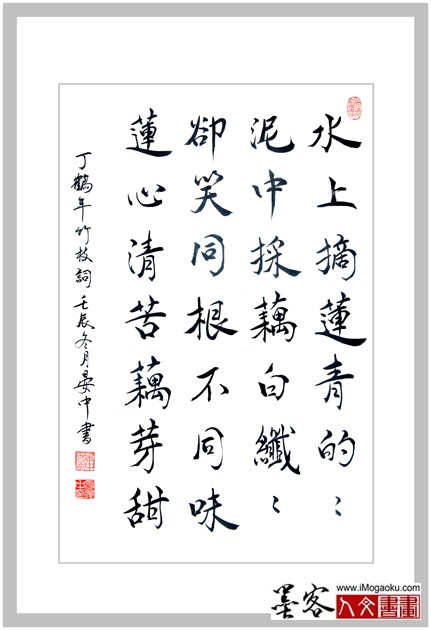 水上摘蓮青的〻
泥中採藕白纖〻
卻笑同根不同味
蓮心清苦藕芽甜
丁鶴年竹枝詞 壬辰冬月晏中書
www.iMogaoku.com
墨客
人文書畫